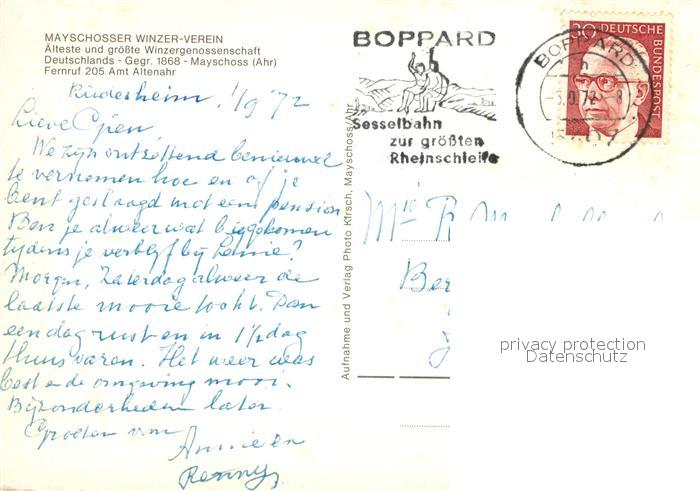 MAYSCHOSSER WINZER-VEREIN
Älteste und größte Winzergenossenschaft
Deutschlands - Gegr. 1868 - Mayschoss (Ahr)
Fernruf 205 Amt Altenahr
1/9 '72
Lieve
We zijn ontzettend benieuwd
te vernemen hoe en of je
bent geslaagd met een pension
Ben je alweer wat bijgekomen
tijdens je verblijf bij
Morgen, Zaterdag alweer de
laatste mooie tocht. Dan
een dag rust en in 1½ dag
thuis varen. Het weer was
best en de omgeving mooi.
Bijzonderheden later.
Groeten van
Annie en
Aufnahme und Verlag Photo Kirsch, Mayschoss/Ahr
BOPPARD
Sesselbahn
zur größten
Rheinschleife
BOPPARD
30 DEUTSCHE BUNDESPOST
Ber
privacy protection
Datenschutz